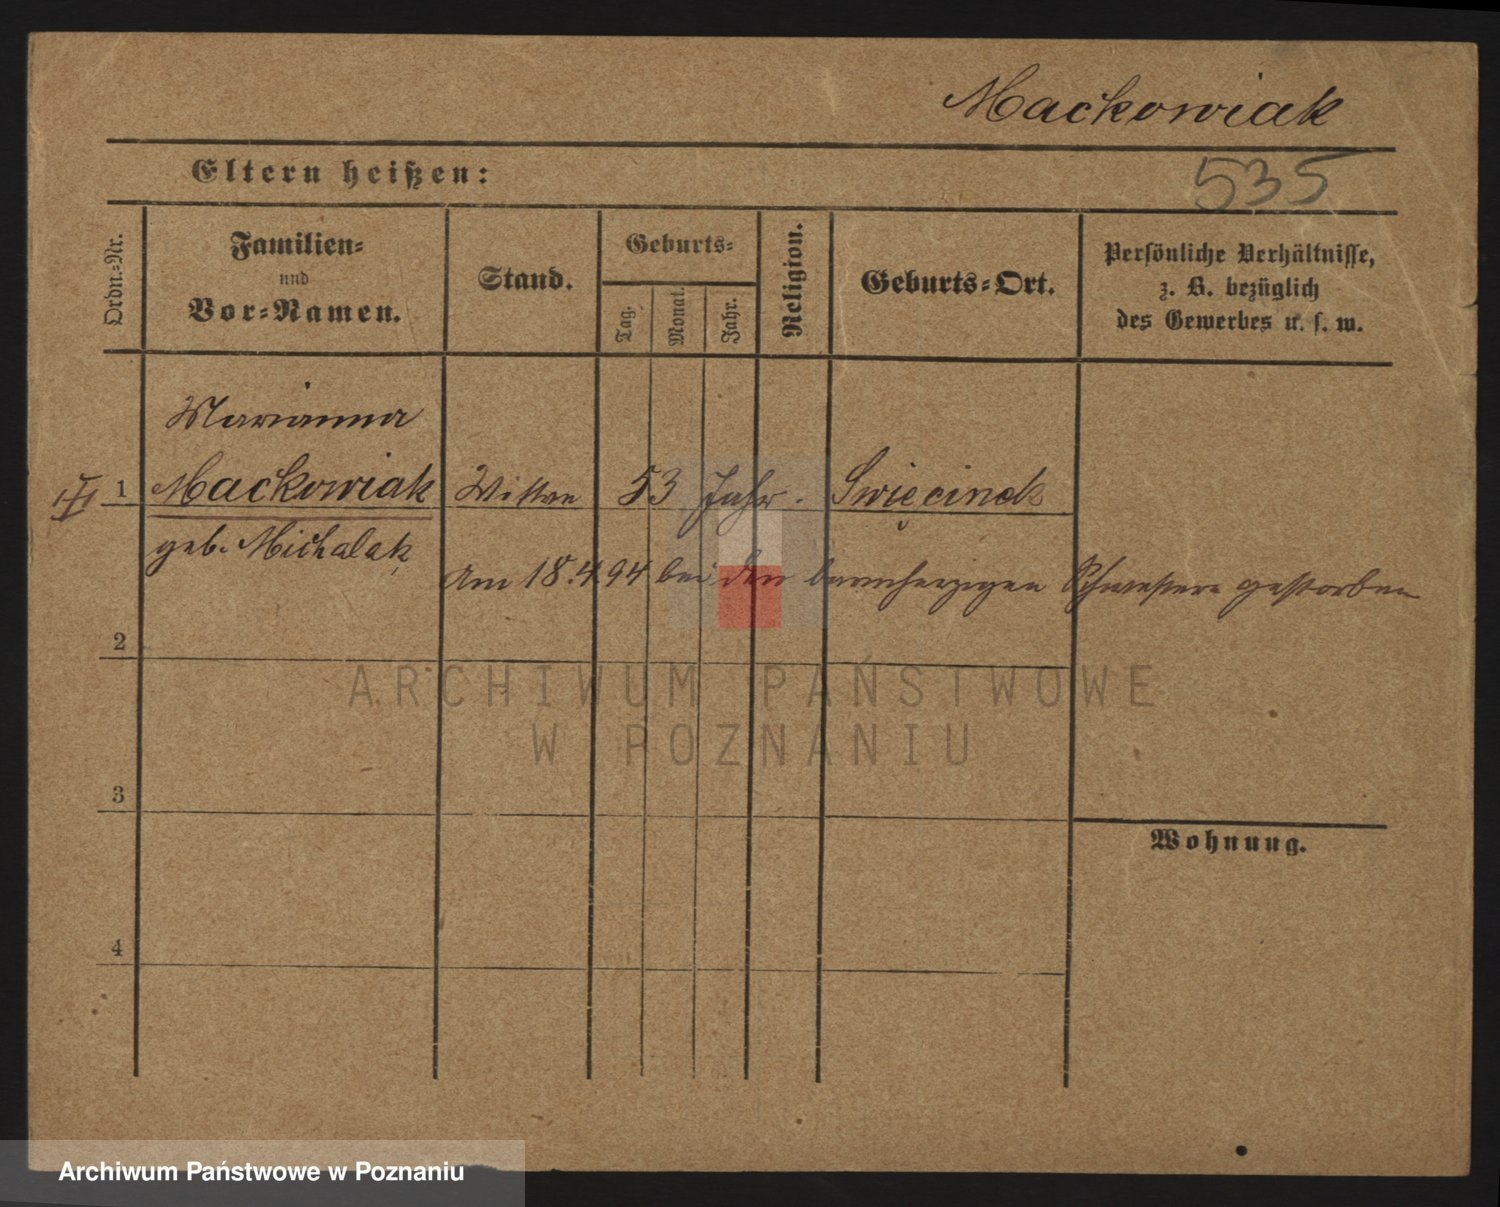 Mackowiak
535
Eltern heißen:
Ordn.-Nr.
Familien-
und
Vor-Namen.
Stand.
Geburts-
Tag.
Monat.
Jahr.
Religion.
Geburts-Ort.
Persönliche Verhältnisse,
z. B. bezüglich
des Gewerbes u. s. w.
Marianna
1 Mackowiak Wittwe 53 Jahr. Swięcinek
geb. Michalak
Am 18.4.94 bei den barmherzigen Schwestern gestorben
2
ARCHIWUM PAŃSTWOWE
W POZNANIU
3
Wohnung.
4
Archiwum Państwowe w Poznaniu